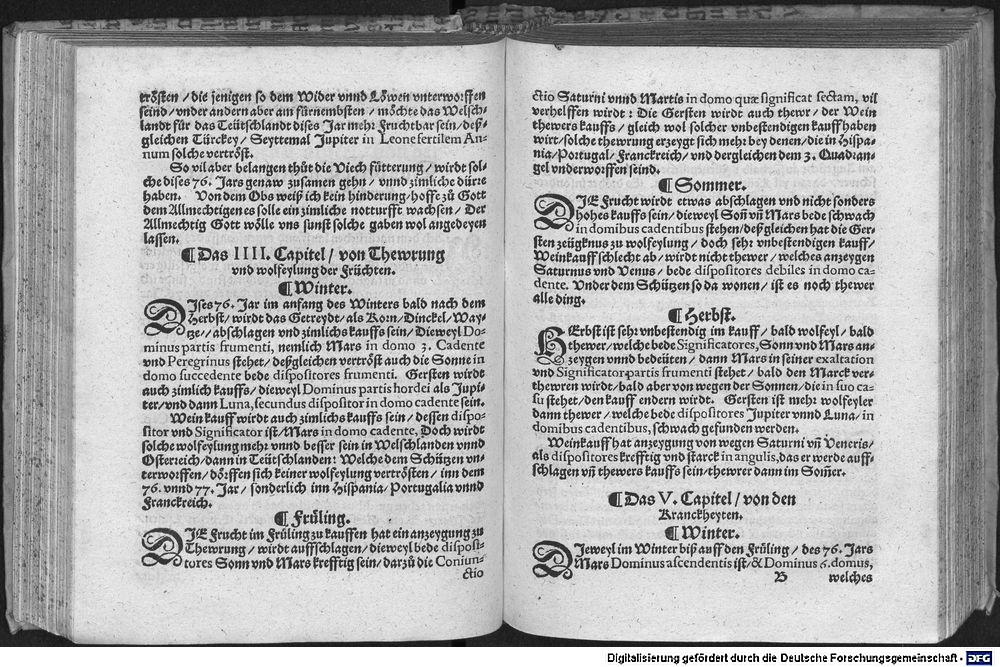 trösten / die jenigen so dem Wider vnnd Löwen vnterworffen
seind / vnder andern aber am fürnembsten / möchte das Welsch-
landt für das Teütschlandt dises Jar mehr Fruchtbar sein / deß-
gleichen Türckey / Seyttemal Jupiter in Leone fertilem An-
num solche vertröst.
So vil aber belangen thüt die Viech fütterung / wirdt sol-
che dises 76. Jars genaw zusamen gehn / vnnd zimliche dürre
haben. Von dem Obs weiß ich kein hinderung / hoffe zů Gott
dem Allmechtigen es solle ein zimliche notturfft wachsen / Der
Allmechtig Gott wölle vns sunst solche gaben wol angedeyen
lassen.
¶ Das IIII. Capitel / von Thewrung
vnd wolfeylung der Früchten.
¶ Winter.
DIses 76. Jar im anfang des Winters bald nach dem
Herbst / wirdt das Getreydt / als Korn / Dinckel / Way-
tze / / abschlagen vnd zimlichs kauffs sein / Dieweyl Do-
minus partis frumenti, nemlich Mars in domo 3. Cadente
vnd Peregrinus stehet / deßgleichen vertröst auch die Sonne in
domo succedente bede dispositores frumenti. Gersten wirdt
auch zimlich kauffs / dieweyl Dominus partis hordei als Jupi-
ter / vnd dann Luna, secundus dispositor in domo cadente sein.
Wein kauff wirdt auch zimlichs kauffs sein / dessen dispo-
sitor vnd Significator ist / Mars in domo cadente, Doch wirdt
solche wolfeylung mehr vnnd besser sein in Welschlanden vnnd
Osterreich / dann in Teütschlanden: Welche dem Schützen vn-
terworffen / dörffen sich keiner wolfeylung vertrösten / inn dem
76. vnnd 77. Jar / sonderlich inn Hispania / Portugalia vnnd
Franckreich.
¶ Früling.
DIE Frucht im Früling zu kauffen hat ein anzeygung zů
Thewrung / wirdt auffschlagen / dieweyl bede disposi-
tores Sonn vnd Mars krefftig sein / darzů die Coniun-
ctio
ctio Saturni vnnd Martis in domo quæ significat sectam, vil
verhelffen wirdt: Die Gersten wirdt auch thewr / der Wein
thewers kauffs / gleich wol solcher vnbestendigen kauff haben
wirt / solche thewrung erzeygt sich mehr bey denen / die in Hispa-
nia / Portugal / Franckreich / vnd dergleichen dem 3. Quadran-
gel vnderworffen seind.
¶ Sommer.
DIE Frucht wirdt etwas abschlagen vnd nicht sonders
hohes kauffs sein / dieweyl Soñ vñ Mars bede schwach
in domibus cadentibus stehen / deß gleichen hat die Ger-
sten zeügknus zů wolfeylung / doch sehr vnbestendigen kauff /
Weinkauff schlecht ab / wirdt nicht thewer / welches anzeygen
Saturnus vnd Venus / bede dispositores debiles in domo ca-
dente. Vnder dem Schützen so da wonen / ist es noch thewer
alle ding.
¶ Herbst.
HErbst ist sehr vnbestendig im kauff / bald wolfeyl / bald
thewer / welche bede Significatores, Sonn vnd Mars an-
zeygen vnnd bedeüten / dann Mars in seiner exaltation
vnd Significator partis frumenti stehet / bald den Marck ver-
thewren wirdt / bald aber von wegen der Sonnen / die in suo ca-
su stehet / den kauff endern wirdt. Gersten ist mehr wolfeyler
dann thewer / welche bede dispositores Jupiter vnnd Luna / in
domibus cadentibus, schwach gefunden werden.
Weinkauff hat anzeygung von wegen Saturni vñ Veneris /
als dispositores krefftig vnd starck in angulis, das er werde auff-
schlagen vñ thewers kauffs sein / thewrer dann im Som̃er.
¶ Das V. Capitel / von den
Kranckheyten.
¶ Winter.
DJeweyl im Winter biß auff den Früling / des 76. Jars
Mars Dominus ascendentis ist / & Dominus 6. domus,
B welches
Digitalisierung gefördert durch die Deutsche Forschungsgemeinschaft - DFG